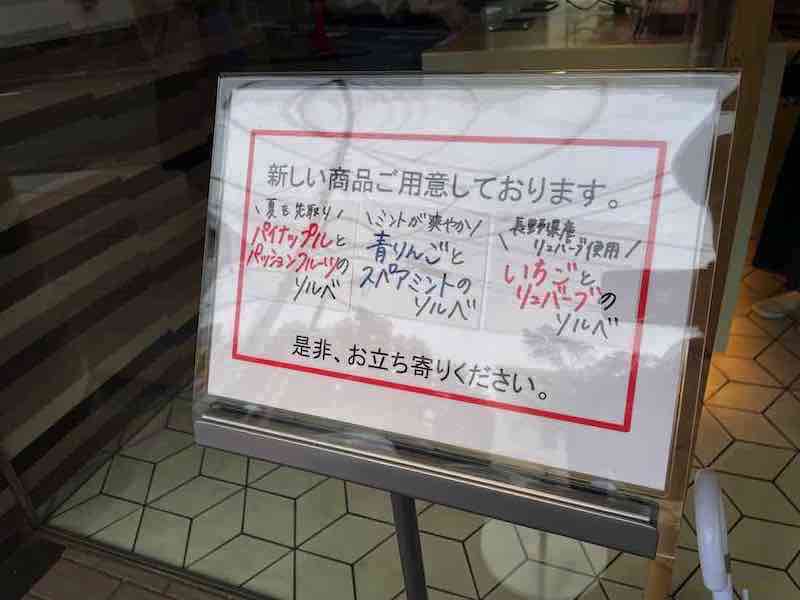 新しい商品ご用意しております。
\ 夏を先取り /
パイナップルと
パッションフルーツの
ソルベ
\ ミントが爽やか /
青りんごと
スペアミントの
ソルベ
長野県産
\ リュバーブ使用 /
いちごと
リュバーブの
ソルベ
是非、お立ち寄りください。